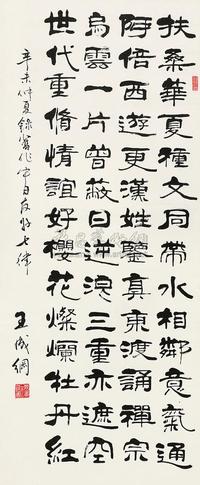 扶桑華夏種文同帶水相鄰意氣通
阿倍西遊更漢姓鑒真東渡誦禪宗
烏雲一片曾蔽日逆浪三重亦遮空
世代重脩情誼好櫻花燦爛牡丹紅
辛未仲夏錄舊作中日友好七律
王成綱